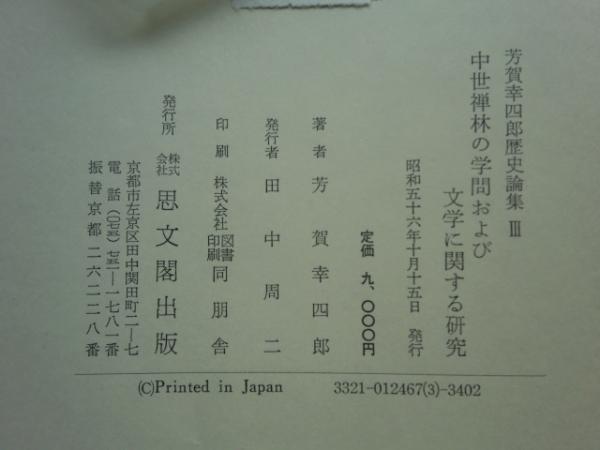 芳賀幸四郎歴史論集 III
中世禅林の学問および
文学に関する研究
昭和五十六年十月十五日 発行
定価 九、〇〇〇円
著者 芳賀幸四郎
発行者 田中周二
印刷 株式会社 図書印刷 同朋舎
発行所 株式会社 思文閣出版
京都市左京区田中関田町二―七
電話(〇七五)七五一―一七八一番
振替京都 二六二二八番
(C)Printed in Japan 3321-012467(3)-3402